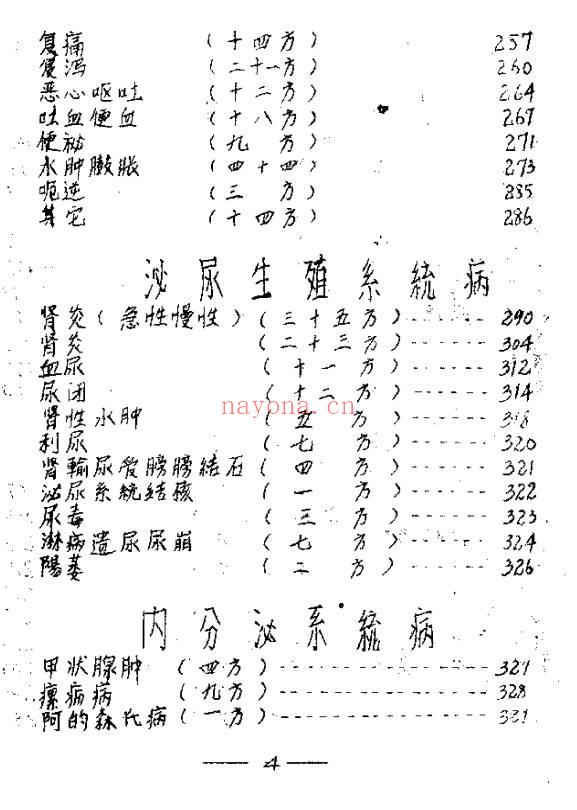 复痛 (十四方) 257
腹泻 (二十一方) 260
恶心呕吐 (十二方) 264
吐血便血 (十八方) 267
便秘 (九 方) 271
水肿臌胀 (四十四) 273
呃逆 (三 方) 285
其它 (十四方) 286
泌尿生殖系統病
肾炎(急性慢性)(三十五方)------ 290
肾炎 (二十三方)------ 304
血尿 (十一 方)------ 312
尿闭 (十二 方)------ 314
nayona.cn
肾性水肿 (五 方)------ 318
利尿 (七 方)------ 320
肾輸尿受膀膀結石 (四 方)------ 321
泌尿系統結核 (一 方)------ 322
尿毒 (三 方)------ 323
淋病遗尿尿崩 (七 方)------ 324
陽萎 (二 方)------ 326
内分泌系統病
甲状腺肿 (四方)------ 327
瘰病病 (九方)------ 328
阿的森氏病 (一方)------ 331
4